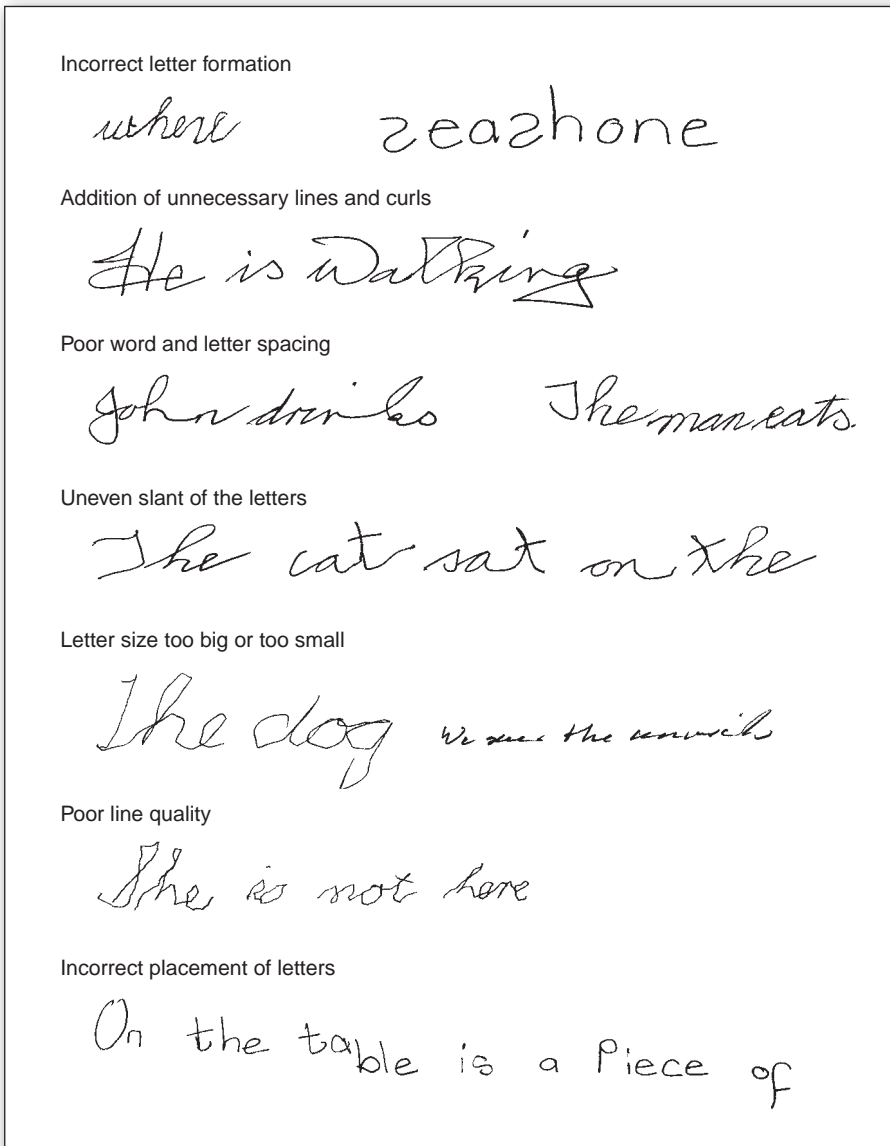 Incorrect letter formation
where seashone
Addition of unnecessary lines and curls
He is Walking
Poor word and letter spacing
John drinks The man eats.
Uneven slant of the letters
The cat sat on the
Letter size too big or too small
The dog We the
Poor line quality
She is not here
Incorrect placement of letters
On the table is a Piece of